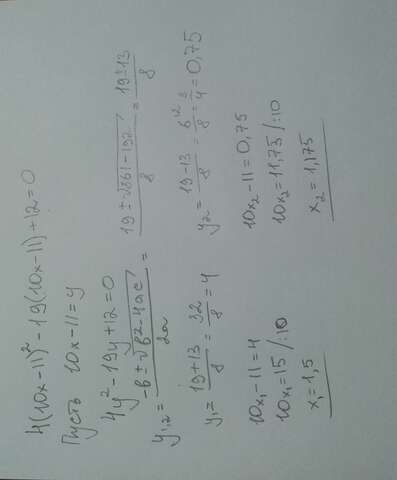 4(10x-11)²-19(10x-11)+12=0
Пусть 10x-11=y
4y²-19y+12=0
y₁,₂ = (-в±√(в²-4ac))/2a = (19±√(361-192))/8 = (19±13)/8
y₁ = (19+13)/8 = 32/8 = 4
y₂ = (19-13)/8 = 6/8 = 3/4 = 0,75
10x₁-11=4
10x₁=15 /:10
x₁=1,5
10x₂-11=0,75
10x₂=11,75 /:10
x₂=1,175